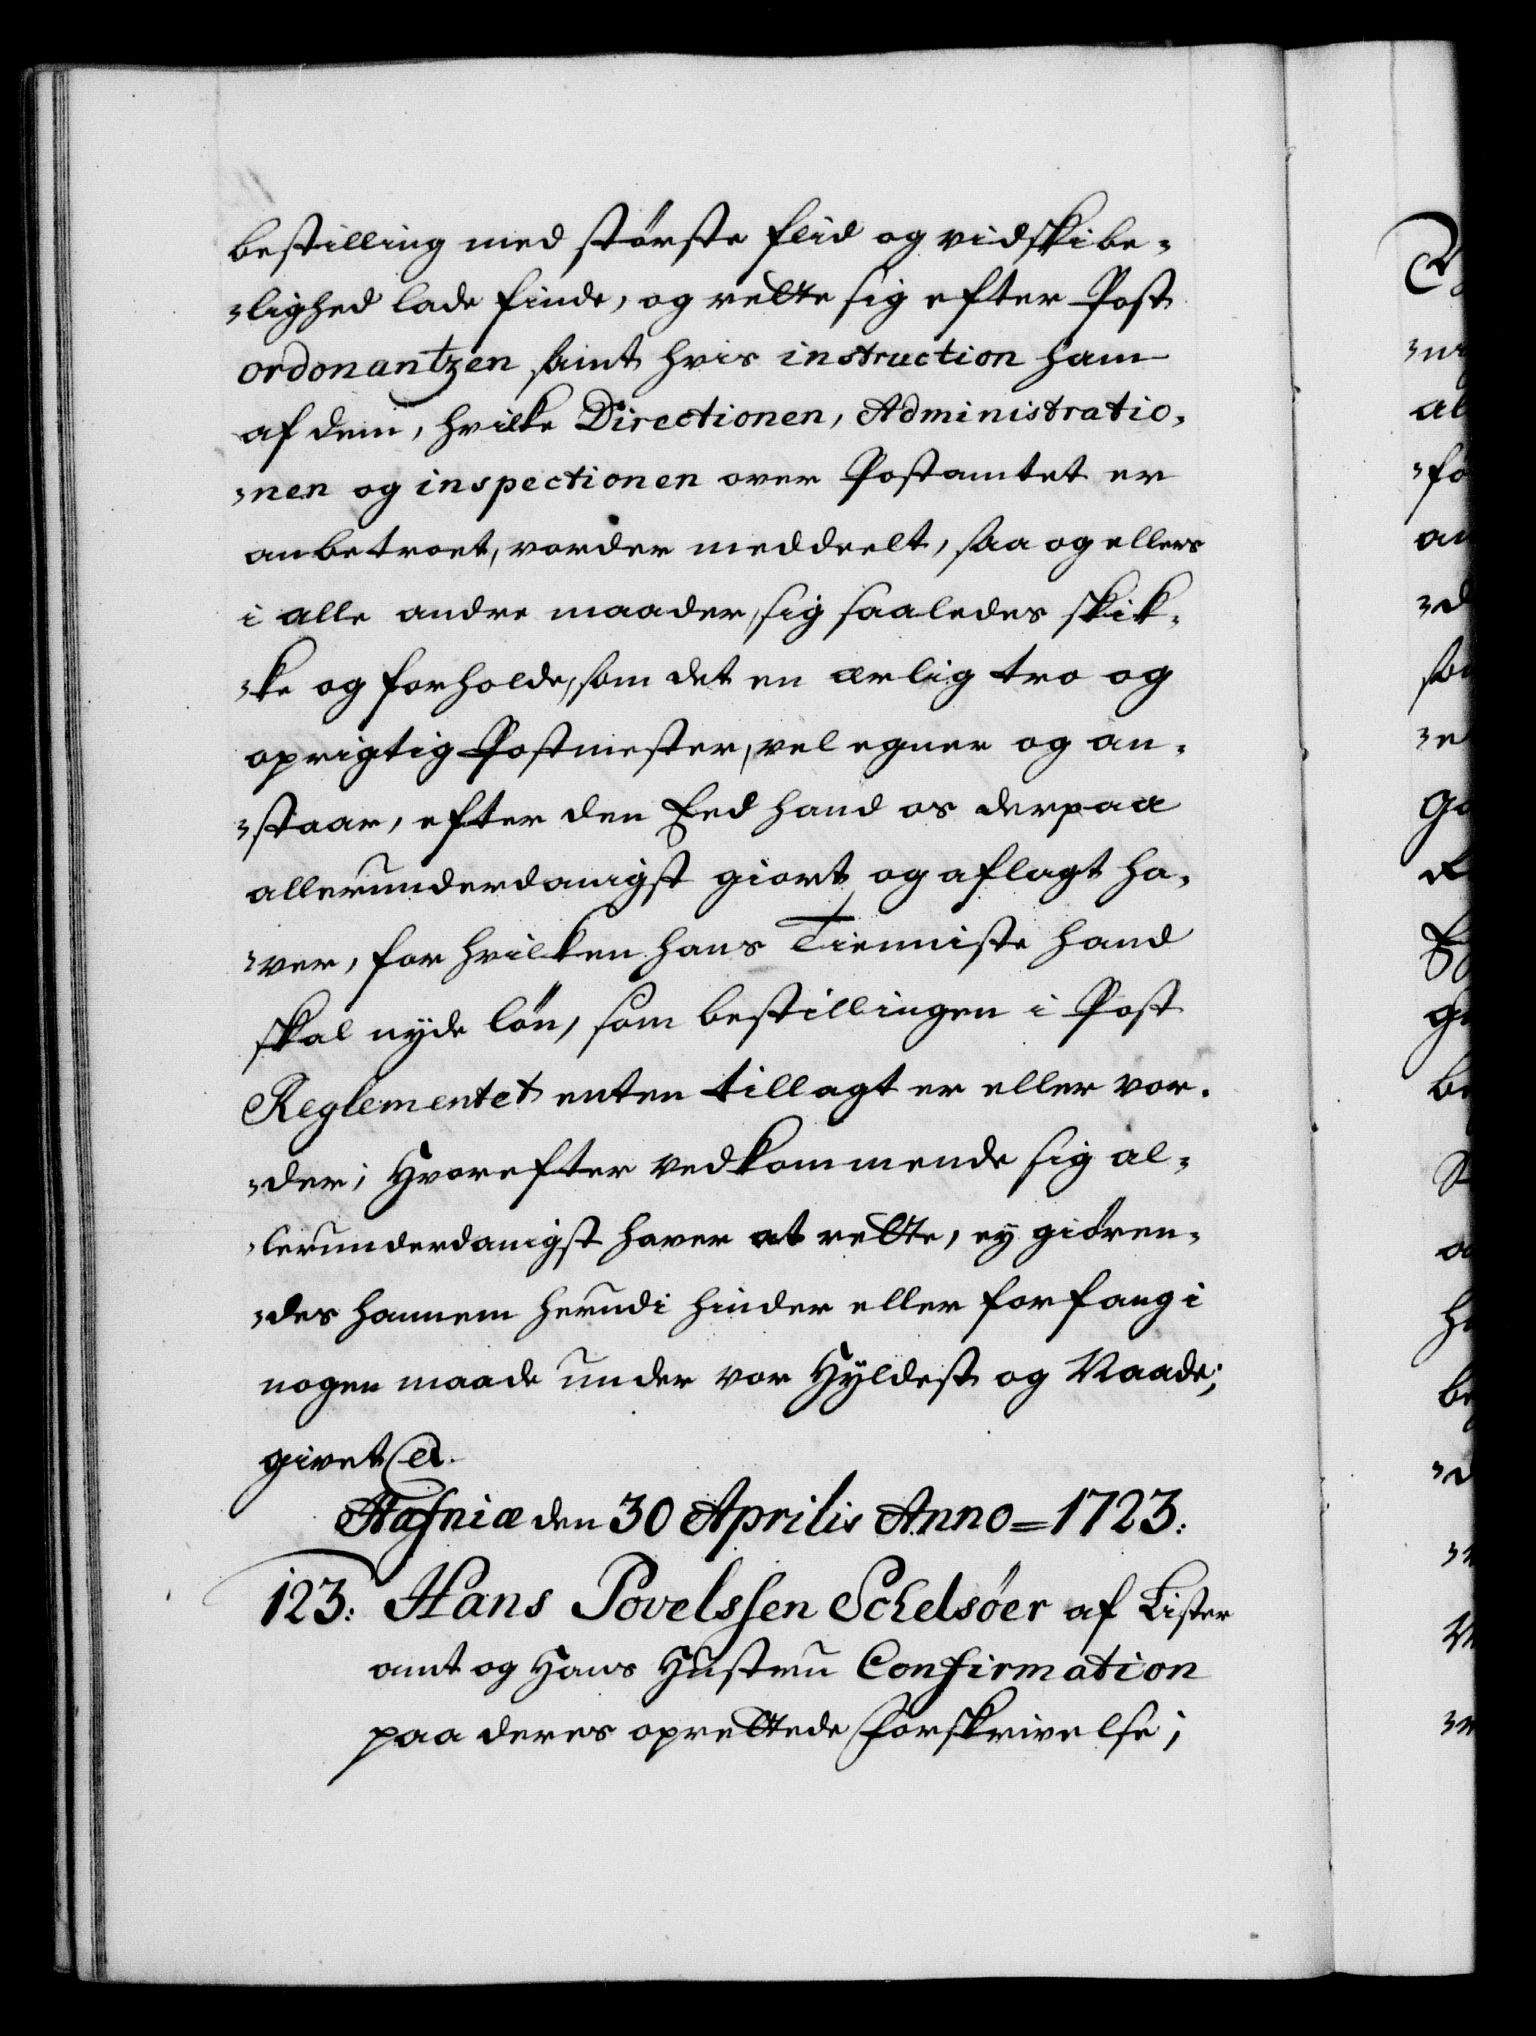 bestilling med störste flid og vidskibe-
-lighed lade finde, og rette sig efter Post
ordonantzen samt hvis instruction ham
af dem, hvilke Directionen, Administratio-
-nen og inspectionen over Postamtet er
anbetroet, vorder meddeelt, saa og ellers
i alle andre maader, sig saaledes skik-
-ke og forholde, som det en ærlig tro og
oprigtig Postmester, vel egner og an-
-staar, efter den Eed hand os derpaa
allerunderdanigst giort og aflagt ha-
-ver, for hvilken hans Tienniste hand
skal nyde lön, som bestillingen i Post
Reglementet enten tillagt er eller vor-
-der; Hvorefter vedkommende sig al-
-lerunderdanigst haver at rette, ey giören-
-des hannem herudi hinder eller forfang i
nogen maade under vor Hyldest og Naade;
givet
Hafniæ den 30 Aprilis Anno=1723:
123: Hans Povelssen Schelsöer af Lister
amt og Hans Hustru Confirmation
paa deres oprettede Forskrivelse;